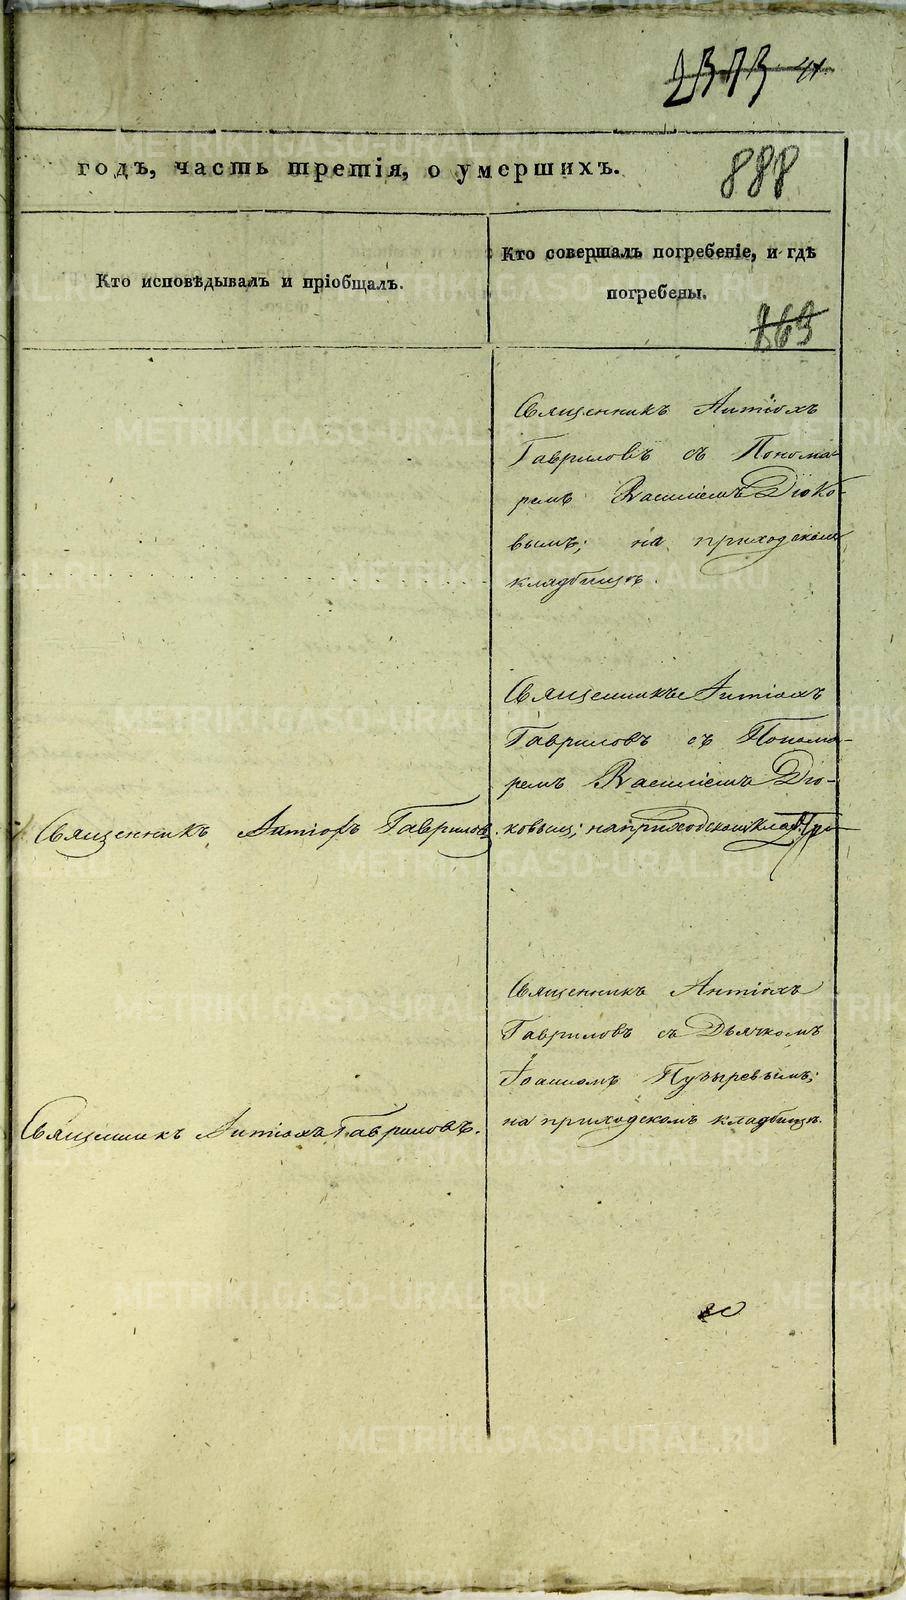 годъ, часть третія, о умершихъ.
888
Кто исповѣдывалъ и пріобщалъ.
Кто совершалъ погребеніе, и гдѣ
погребены.
869
Священникъ Антіохъ
Гавриловъ съ Понома-
ремъ Василіемъ Дюко-
вымъ; на приходскомъ
кладбищѣ.
Священникъ Антіохъ
Гавриловъ съ Понома-
ремъ Василіемъ Дю-
Священникъ Антіохъ Гавриловъ.
ковымъ; на приходскомъ
Священникъ Антіохъ
Гавриловъ съ Дьячкомъ
Іоанномъ Пузыревымъ;
на приходскомъ кладбищѣ.
Священникъ Антіохъ Гавриловъ.
METRIKI.GASO-URAL.RU